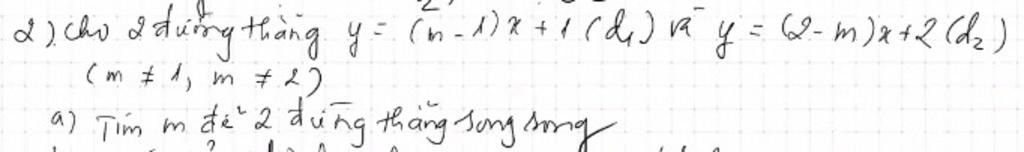 2) Cho 2 đường thẳng y = (m - 1)x + 1 (d₁) và y = (2 - m)x + 2 (d₂)
(m ≠ 1, m ≠ 2)
a) Tìm m để 2 đường thẳng song song